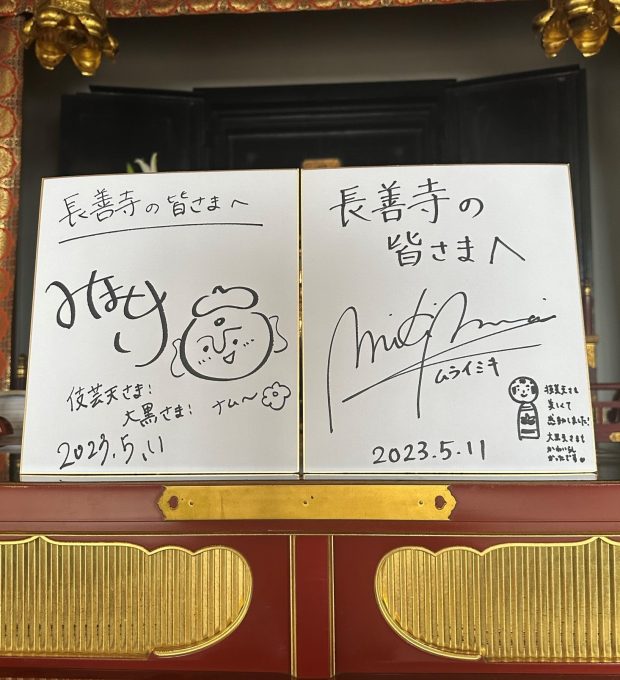 長善寺の皆さまへ
みほとけ
伎芸天さま!
大黒さま! ナム〜
2023.5.11
長善寺の
皆さまへ
Miki Murai
ムライミキ
2023.5.11
伎芸天さま
美しくて
感動しました!
大黒天さまも
かわいらし
かったです♥